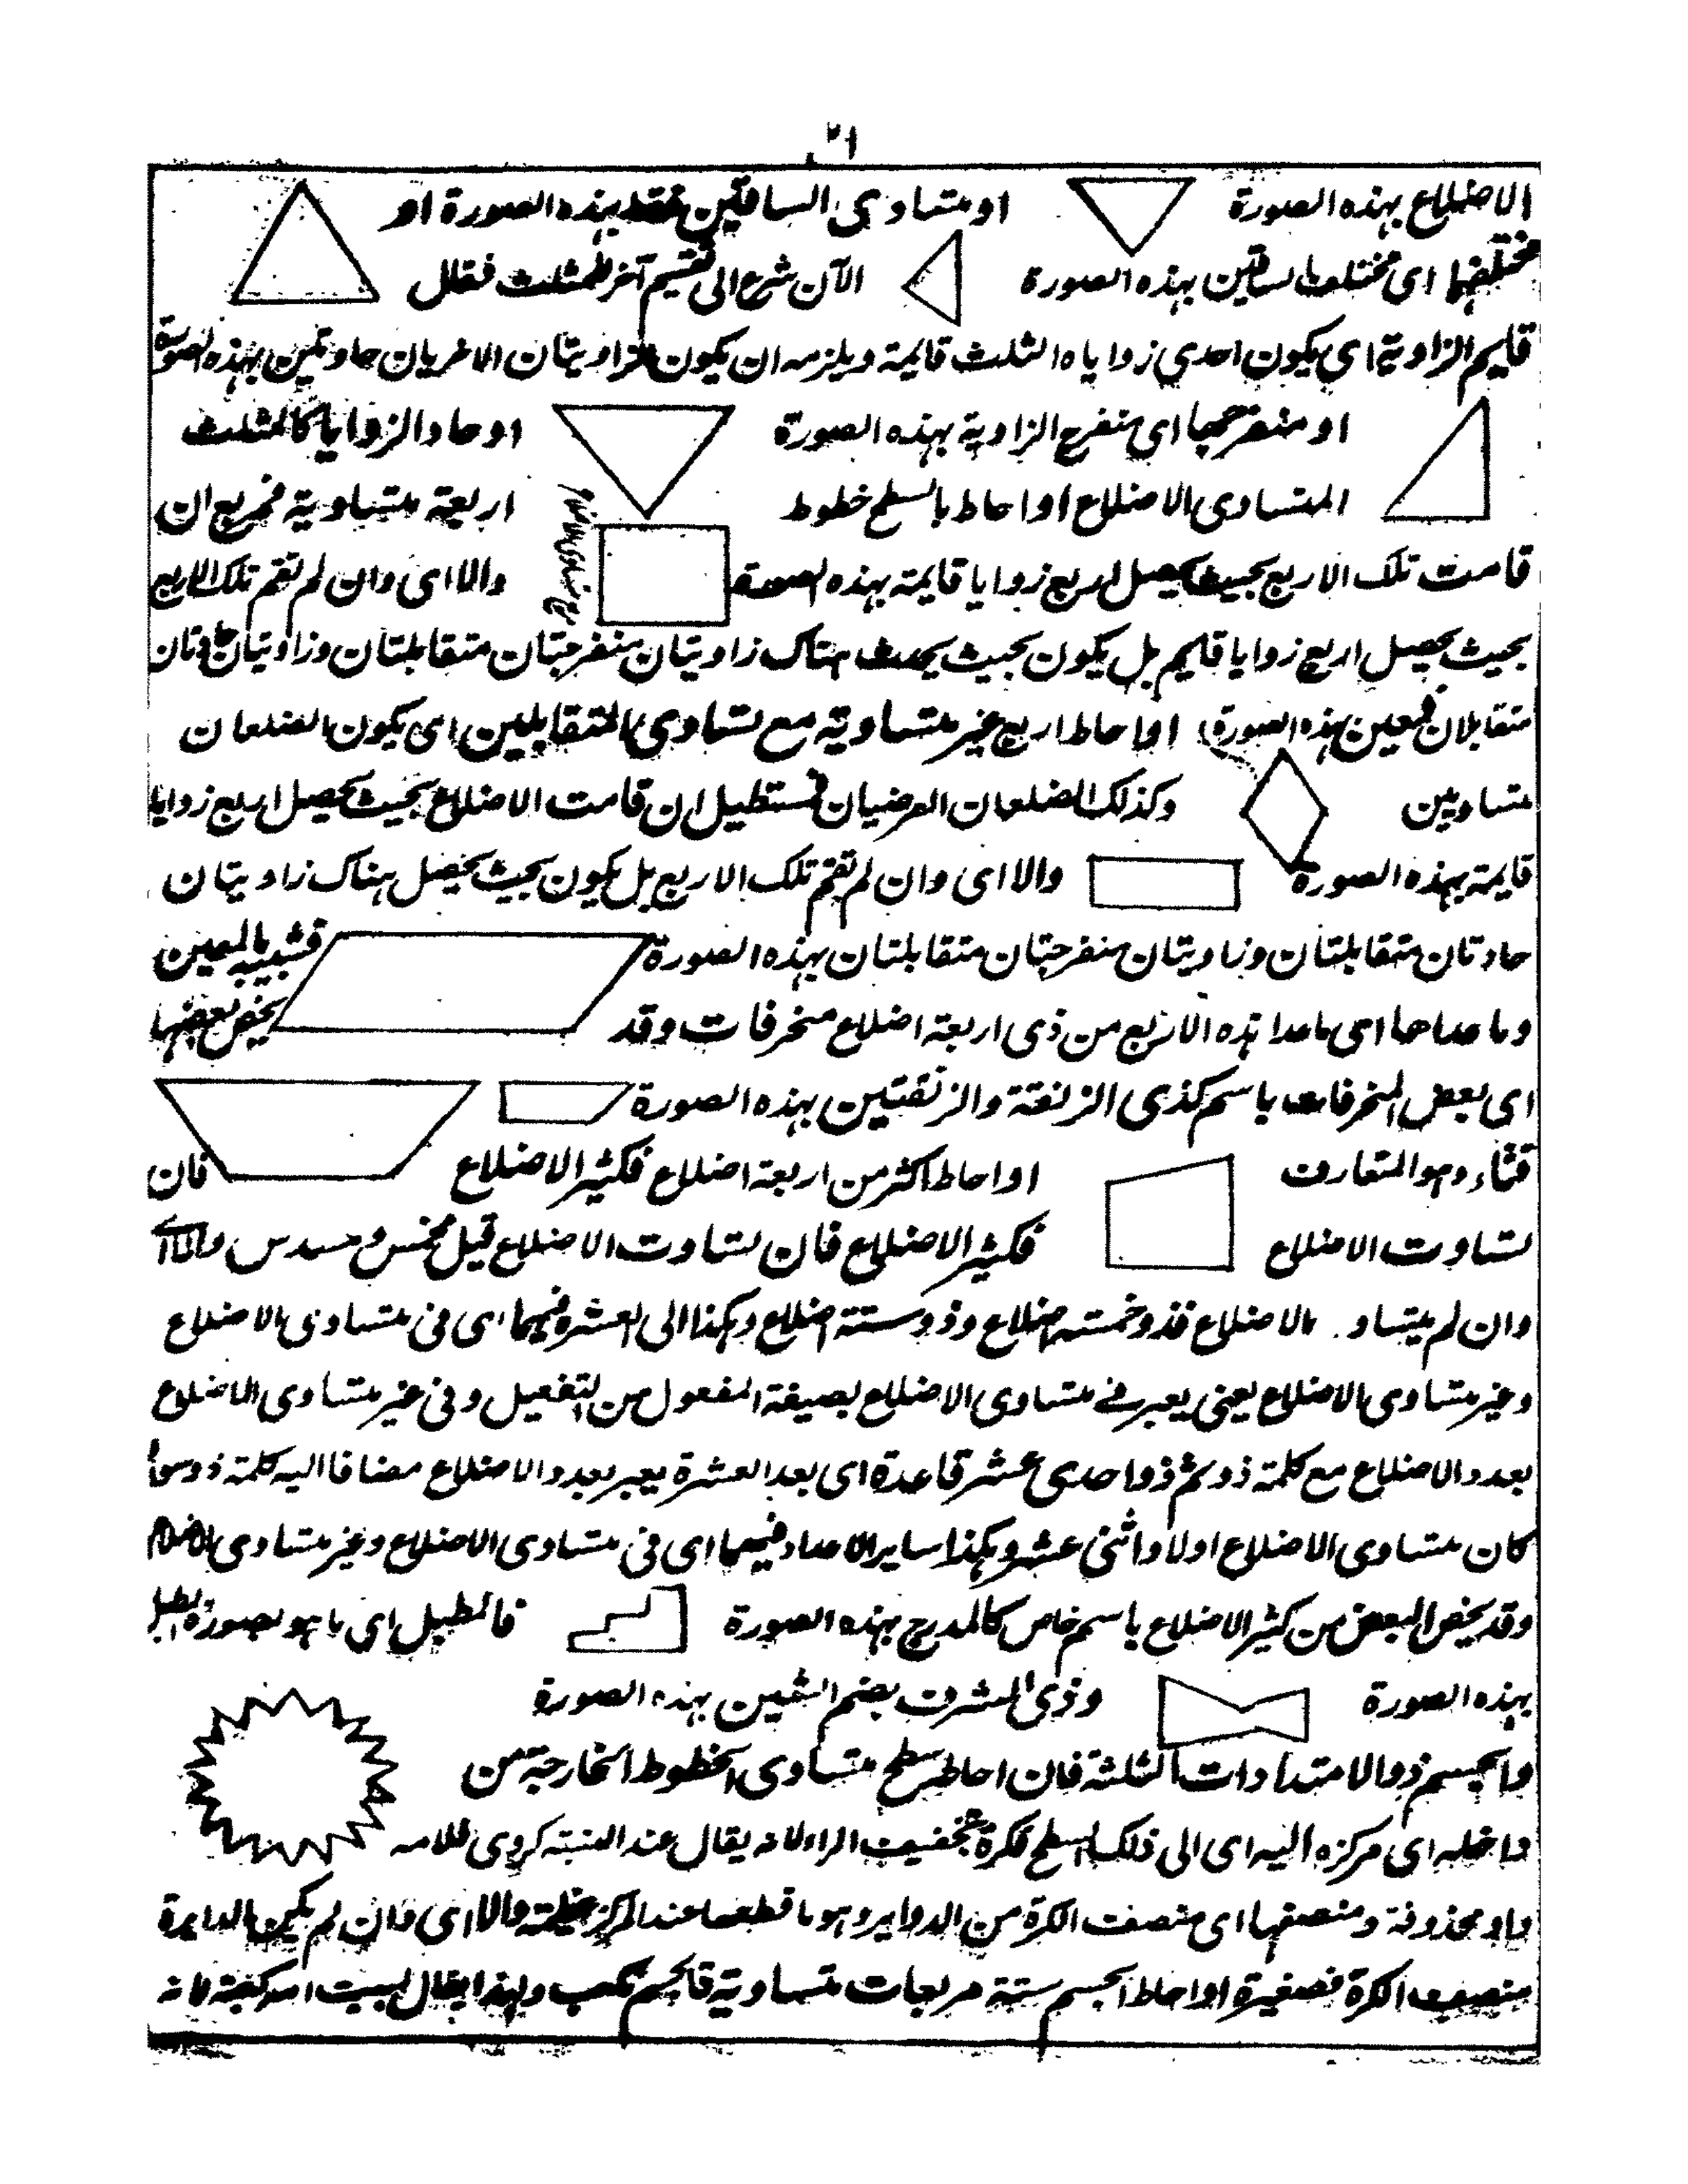 ٢١
الاضلاع بهذه الصورة او متساوى الساقين فقط بهذه الصورة او
مختلفها اى مختلف الساقين بهذه الصورة الآن شرع الى تقسيم آخر للمثلث فقال
قايم الزاوية اى يكون احدى زواياه الثلث قايمة ويلزمه ان يكون الزاويتان الاخريان حادتين بهذه الصورة
او منفرجها اى منفرج الزاوية بهذه الصورة او حاد الزوايا كالمثلث
المتساوى الاضلاع او احاط بالسطح خطوط اربعة متساوية فمربع ان
قامت تلك الاربع بحيث يحصل اربع زوايا قايمة بهذه الصورة والا اى وان لم تقم تلك الاربع
بحيث يحصل اربع زوايا قايم بل يكون بحيث يحدث هناك زاويتان منفرجتان متقابلتان وزاويتان حادتان
متقابلان فمعين بهذه الصورة او احاط اربع غير متساوية مع تساوى المتقابلين اى يكون الضلعان
متساويين وكذلك الضلعان العرضيان فمستطيل ان قامت الاضلاع بحيث يحصل اربع زوايا
قايمة بهذه الصورة والا اى وان لم تقم تلك الاربع بل يكون بحيث يحصل هناك زاويتان
حادتان متقابلتان وزاويتان منفرجتان متقابلتان بهذه الصورة فشبيه بالمعين
وما عداها اى ما عدا هذه الاربع من ذى اربعة اضلاع منحرفات وقد يخص بعضها
اى بعض المنحرفات باسم كذى الزنقة والزنقتين بهذه الصورة
قثاء وهو المتعارف او احاط اكثر من اربعة اضلاع فكثير الاضلاع فان
تساوت الاضلاع فكثير الاضلاع فان تساوت الاضلاع قيل مخمس ومسدس والا اى
وان لم يتساو الاضلاع فذو خمسة اضلاع وذو ستة اضلاع وهكذا الى العشرة فيهما اى فى متساوى الاضلاع
وغير متساوى الاضلاع يعنى يعبر فى متساوى الاضلاع بصيغة المفعول من التفعيل وفى غير متساوى الاضلاع
بعدد الاضلاع مع كلمة ذو ثم ذو احدى عشر قاعدة اى بعد العشرة يعبر بعدد الاضلاع مضافا اليه كلمة ذو سواء
كان متساوى الاضلاع اولا واثنى عشر وهكذا ساير الاعداد فيهما اى فى متساوى الاضلاع وغير متساوى الاضلاع
وقد يخص البعض من كثير الاضلاع باسم خاص كالمدرج بهذه الصورة فالمطبل اى ما هو بصورة طبل
بهذه الصورة وذى الشرف بضم الشين بهذه الصورة
والجسم ذو الامتدادات الثلثة فان احاطه سطح متساوى الخطوط الخارجة من
داخله اى مركزه اليه اى الى ذلك السطح فكرة بتخفيف الراء لانه يقال عند النسبة كروى فلامه
واو محذوفة ومنصفها اى منصف الكرة من الدواير وهو ما قطعها عند المركز عظيمة والا اى وان لم يكن الدايرة
منصف الكرة فصغيرة او احاط الجسم ستة مربعات متساوية فالجسم مكعب ولهذا يقال لبيت الله كعبة لانه